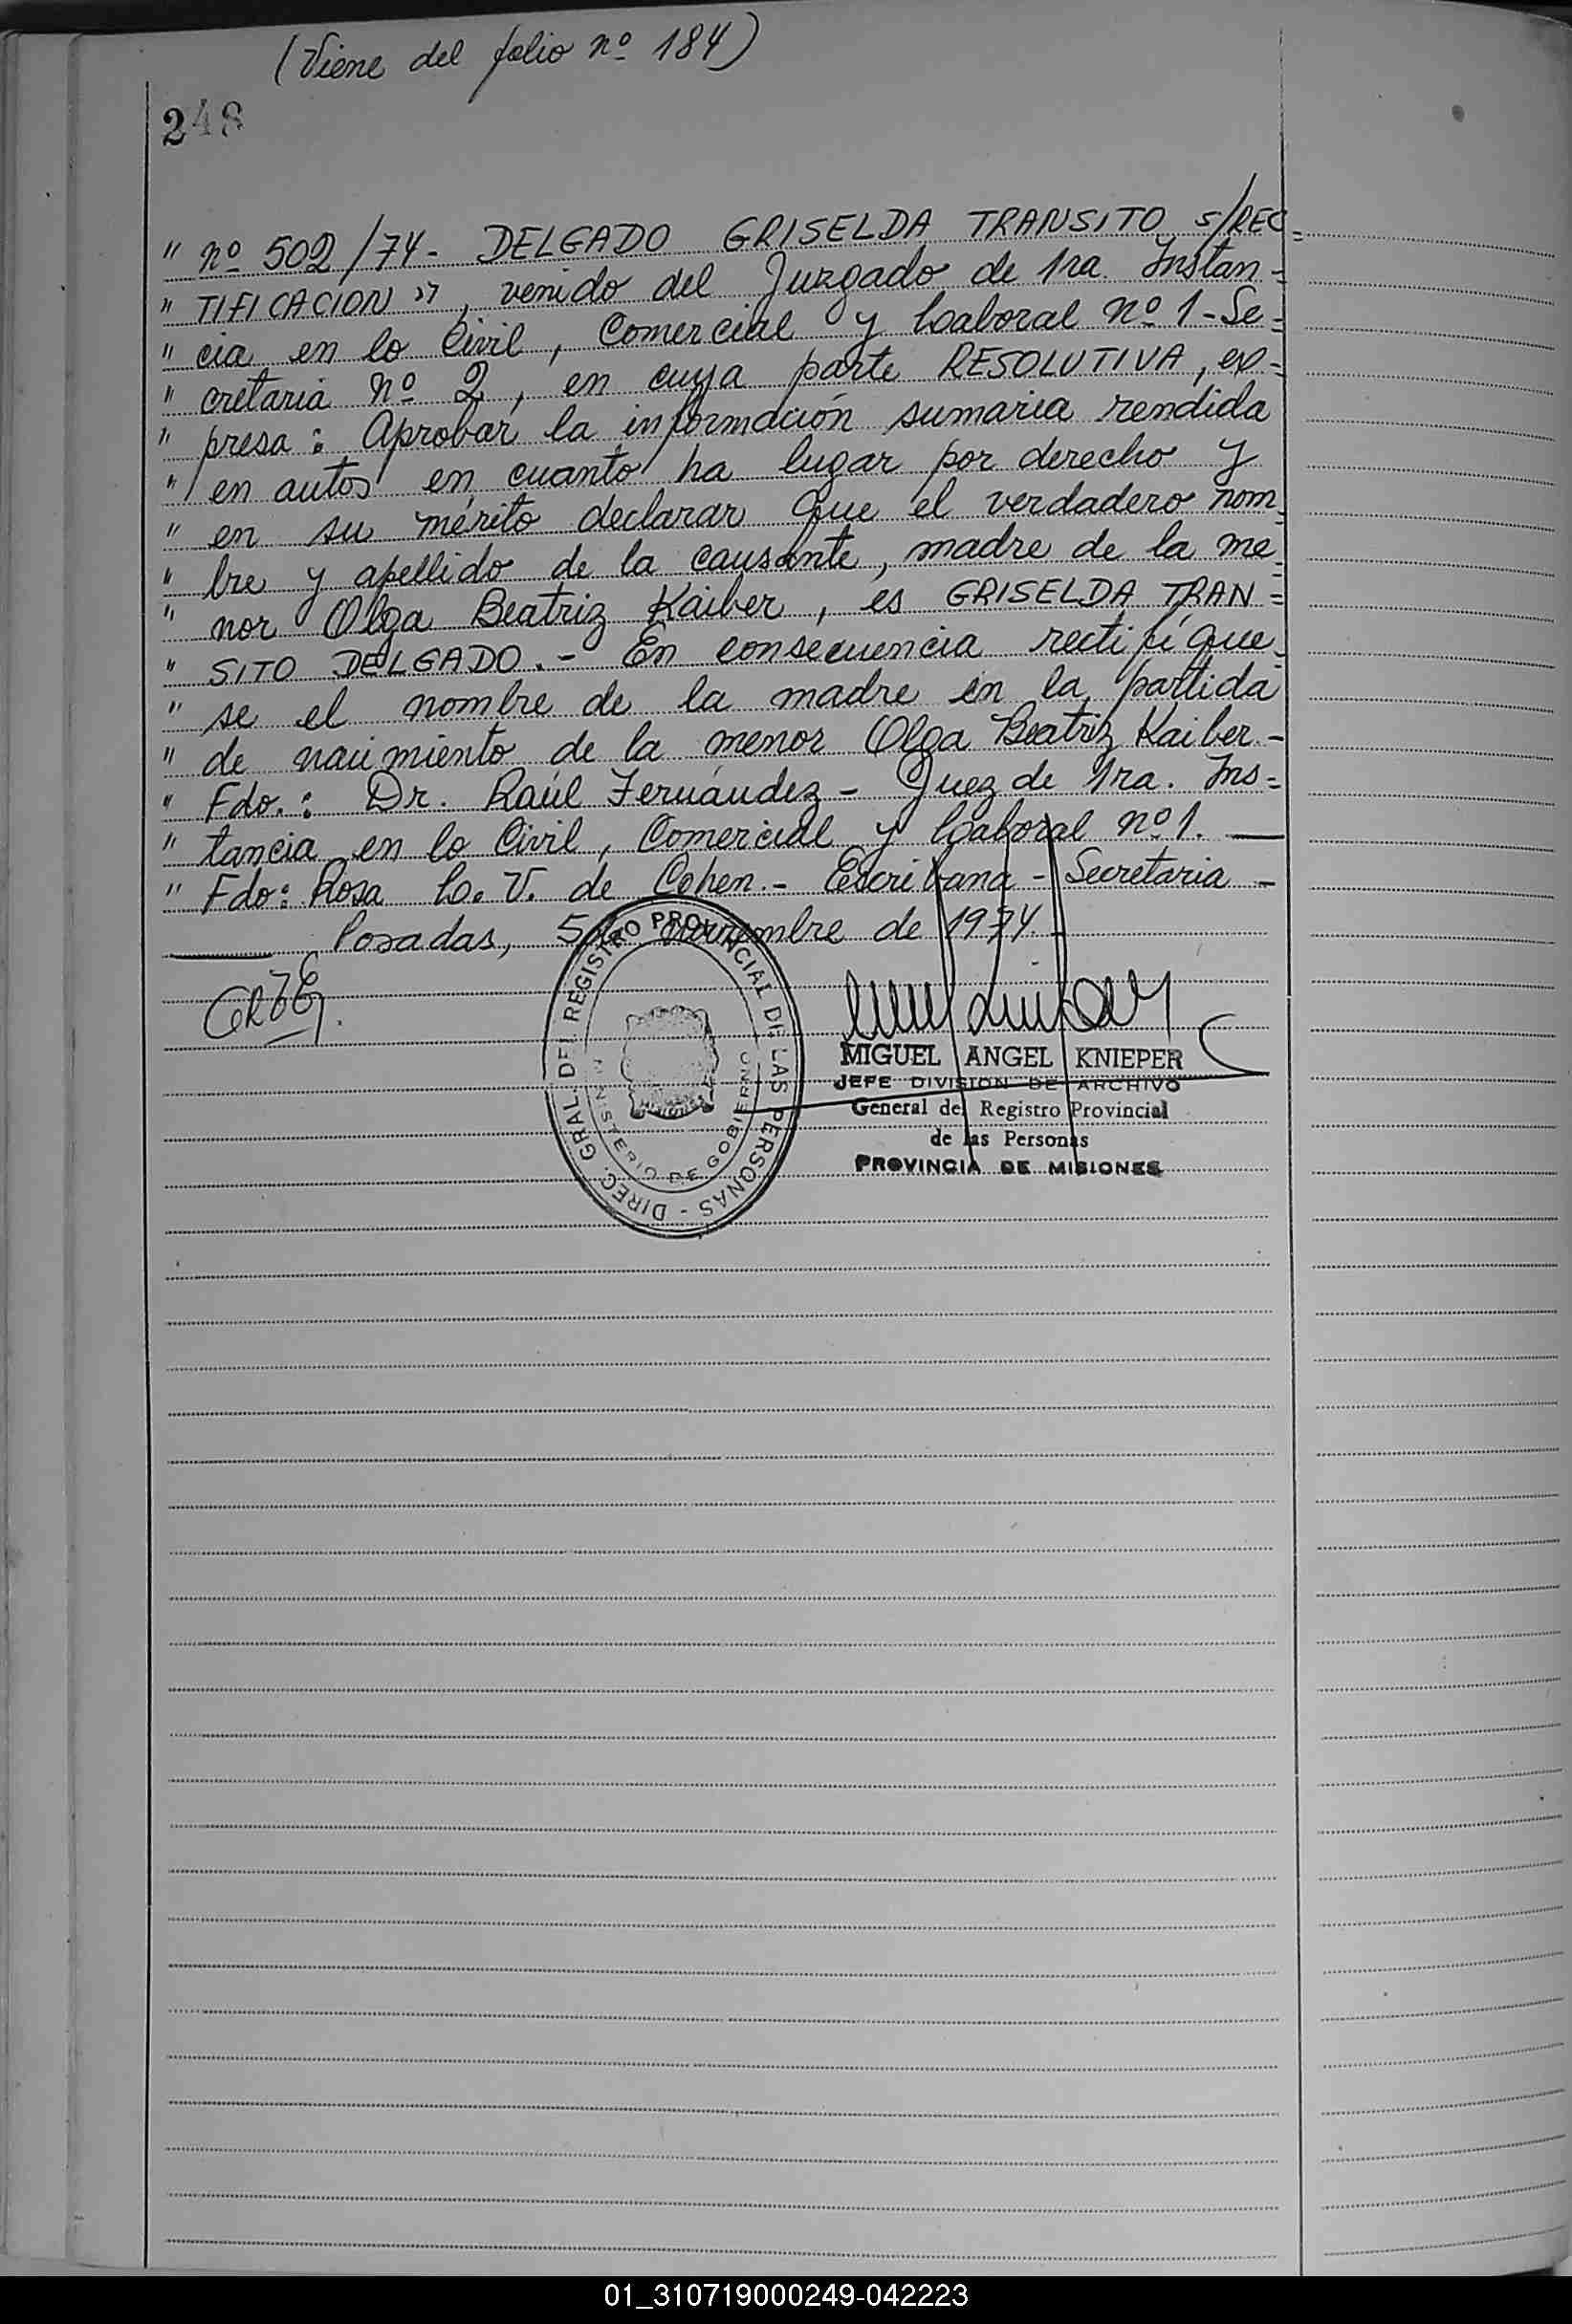 (Viene del folio nº 184)
248
" nº 502/74- DELGADO GRISELDA TRANSITO s/REC=
" TIFICACION", venido del Juzgado de 1ra. Instan=
" cia en lo Civil, Comercial y Laboral nº 1-Se=
" cretaria nº 2, en cuya parte RESOLUTIVA, ex=
" presa: Aprobar la información sumaria rendida
" en autos en cuanto ha lugar por derecho y
" en su mérito declarar que el verdadero nom=
" bre y apellido de la causante, madre de la me=
" nor Olga Beatriz Kaiber, es GRISELDA TRAN=
" SITO DELGADO.- En consecuencia rectifíque=
" se el nombre de la madre en la partida
" de nacimiento de la menor Olga Beatriz Kaiber.-
" Fdo.: Dr. Raúl Fernández - Juez de 1ra. Ins=
" tancia en lo Civil, Comercial y Laboral nº 1.
" Fdo: Rosa L. V. de Cohen.- Escribana - Secretaria -
Posadas, 5 de noviembre de 1974.-
DIREC. GRAL. DEL REGISTRO PROVINCIAL DE LAS PERSONAS -
MINISTERIO DE GOBIERNO
MIGUEL ANGEL KNIEPER
JEFE DIVISION DE ARCHIVO
General del Registro Provincial
de las Personas
PROVINCIA DE MISIONES
01_310719000249-042223